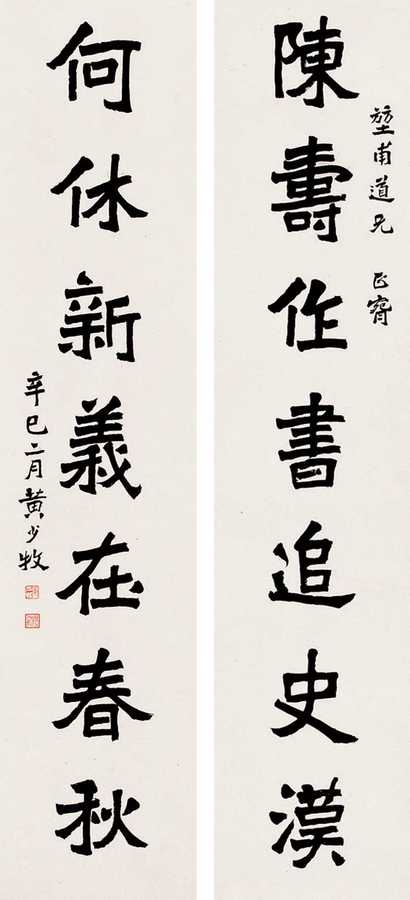 陳壽作書追史漢
堃甫道兄 正膋
何休新義在春秋
辛巳二月黄少牧